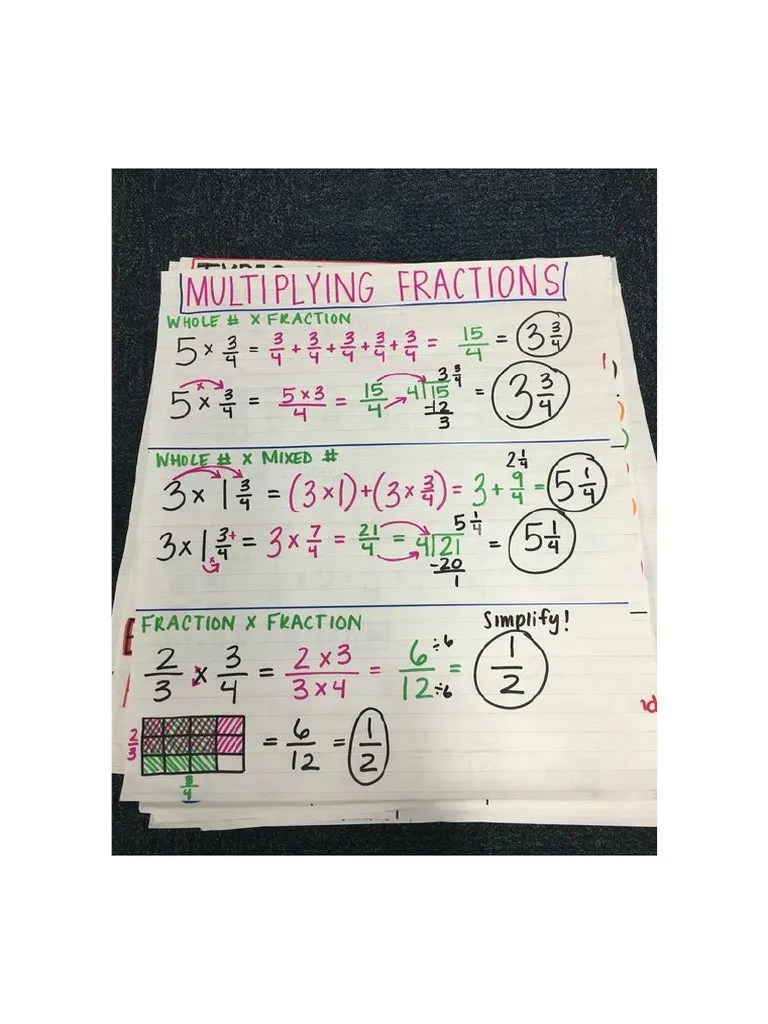 MULTIPLYING FRACTIONS
WHOLE # X FRACTION
5 × 3/4 = 3/4 + 3/4 + 3/4 + 3/4 + 3/4 = 15/4 = 3 3/4
5 × 3/4 = 5 x 3/4 = 15/4 4)15 3 3/4 = 3 3/4
-12
3
WHOLE # X MIXED #
2 1/4
3 × 1 3/4 = (3 × 1) + (3 × 3/4) = 3 + 9/4 = 5 1/4
3 × 1 3/4 = 3 × 7/4 = 21/4 = 4)21 5 1/4 = 5 1/4
-20
1
FRACTION X FRACTION
Simplify!
2/3 x 3/4 = 2 x 3/3 x 4 = 6÷6/12÷6 = 1/2
2/3
= 6/12 = 1/2
3/4